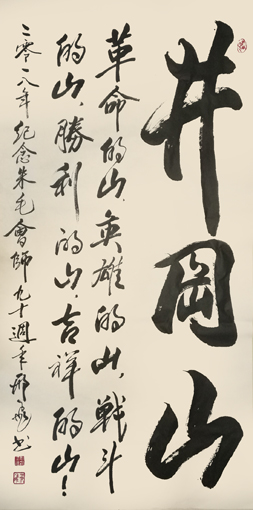 井岡山
革命的山,英雄的山,戰斗
的山,勝利的山,吉祥的山!
二零一八年紀念朱毛會師九十週年邢飛書